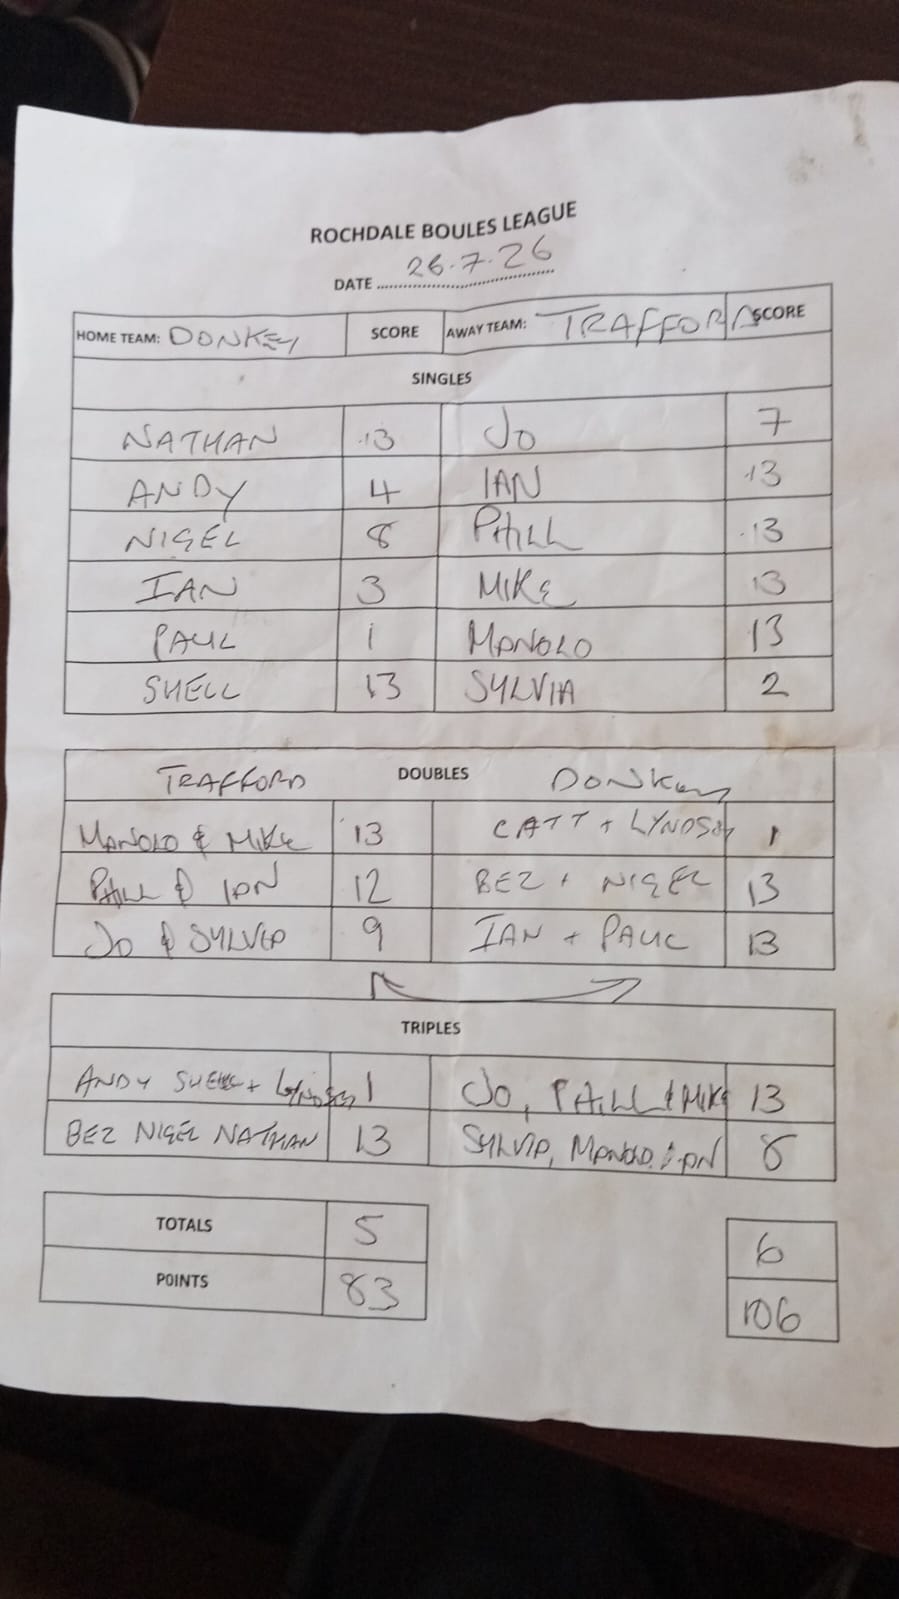 ROCHDALE BOULES LEAGUE
DATE 26.7.26
HOME TEAM: DONKEY SCORE AWAY TEAM: TRAFFORD SCORE
SINGLES
NATHAN 13 JO 7
ANDY 4 IAN 13
NIGEL 8 PHILL 13
IAN 3 MIKE 13
PAUL 1 MANOLO 13
SHELL 13 SYLVIA 2
TRAFFORD DOUBLES DONKEY
MANOLO & MIKE 13 CATT + LYNDSEY 1
PHILL & IAN 12 BEZ + NIGEL 13
JO & SYLVIA 9 IAN + PAUL 13
TRIPLES
ANDY SHELL + LYNDSEY 1 JO, PHILL & MIKE 13
BEZ NIGEL NATHAN 13 SYLVIA, MANOLO, IAN 8
TOTALS 5 6
POINTS 83 106